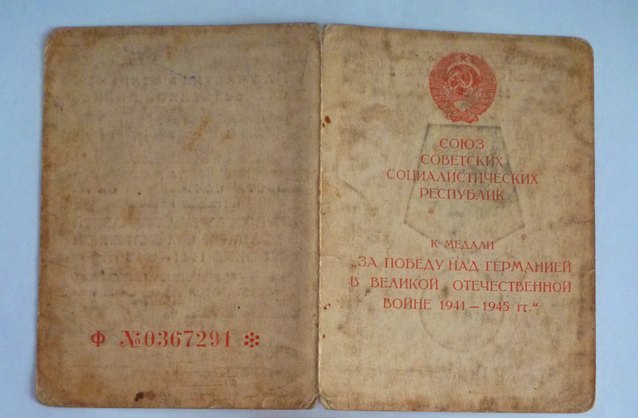 Ф №0367291 ✻
СОЮЗ
СОВЕТСКИХ
СОЦИАЛИСТИЧЕСКИХ
РЕСПУБЛИК
К МЕДАЛИ
„ЗА ПОБЕДУ НАД ГЕРМАНИЕЙ
В ВЕЛИКОЙ ОТЕЧЕСТВЕННОЙ
ВОЙНЕ 1941—1945 гг.“